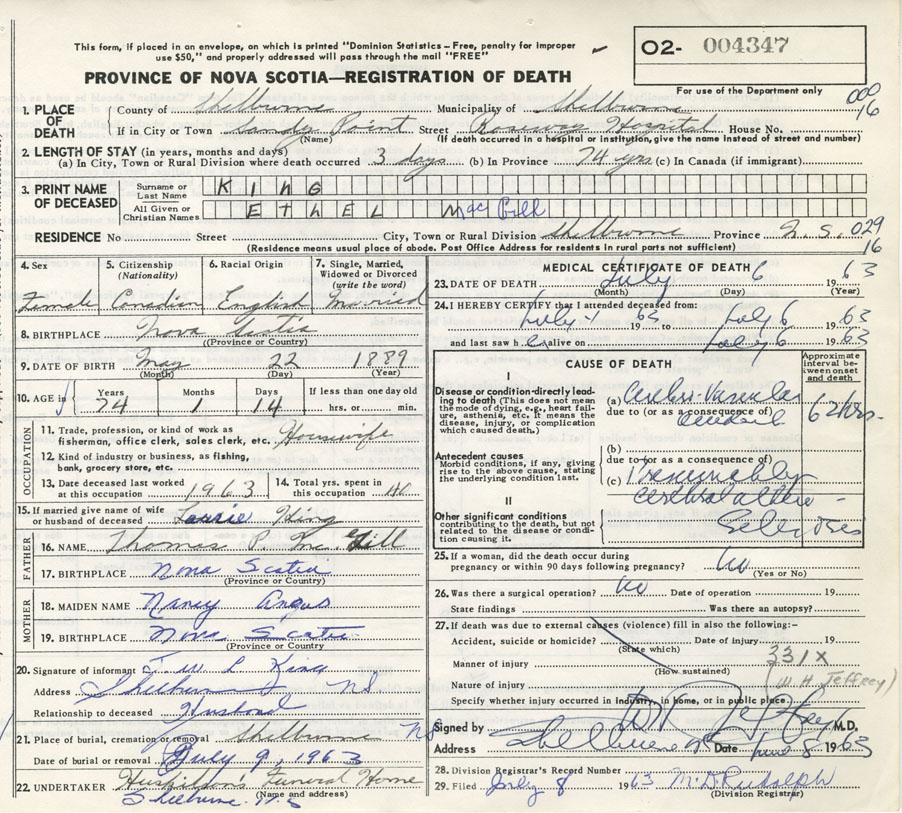 This form, if placed in an envelope, on which is printed "Dominion Statistics – Free, penalty for improper
use $50," and properly addressed will pass through the mail "FREE"
O2- 004347
PROVINCE OF NOVA SCOTIA—REGISTRATION OF DEATH
For use of the Department only
000
16
1. PLACE OF DEATH
County of Shelburne Municipality of Shelburne
If in City or Town Sandy Point Street Roseway Hospital House No.
(Name) (If death occurred in a hospital or institution, give the name instead of street and number)
2. LENGTH OF STAY (in years, months and days)
(a) In City, Town or Rural Division where death occurred 3 days (b) In Province 74 yrs (c) In Canada (if immigrant)
3. PRINT NAME OF DECEASED
Surname or Last Name KING
All Given or Christian Names ETHEL MacGill
RESIDENCE No Street City, Town or Rural Division Shelburne Province N. S. 029
16
(Residence means usual place of abode. Post Office Address for residents in rural parts not sufficient)
4. Sex
Female
5. Citizenship (Nationality)
Canadian
6. Racial Origin
English
7. Single, Married, Widowed or Divorced (write the word)
Married
8. BIRTHPLACE Nova Scotia
(Province or Country)
9. DATE OF BIRTH May 22 1889
(Month) (Day) (Year)
10. AGE in Years Months Days If less than one day old
74 1 14 hrs. or min.
OCCUPATION
11. Trade, profession, or kind of work as
fisherman, office clerk, sales clerk, etc. Housewife
12. Kind of industry or business, as fishing,
bank, grocery store, etc.
13. Date deceased last worked
at this occupation 1963
14. Total yrs. spent in
this occupation 40
15. If married give name of wife
or husband of deceased Laurie King
FATHER
16. NAME Thomas P. McGill
17. BIRTHPLACE Nova Scotia
(Province or Country)
MOTHER
18. MAIDEN NAME Nancy Angus
19. BIRTHPLACE Nova Scotia
(Province or Country)
20. Signature of informant J W L King
Address Shelburne NS
Relationship to deceased Husband
21. Place of burial, cremation or removal Shelburne NS
Date of burial or removal July 9, 1963
22. UNDERTAKER Funeral Home
(Name and address)
Shelburne. N.S
MEDICAL CERTIFICATE OF DEATH
23. DATE OF DEATH July 6 1963
(Month) (Day) (Year)
24. I HEREBY CERTIFY that I attended deceased from:
July 4 1963 to July 6 1963
and last saw her alive on July 6 1963
CAUSE OF DEATH
Approximate interval between onset and death
I
Disease or condition directly leading to death (This does not mean
the mode of dying, e.g., heart failure, asthenia, etc. It means the
disease, injury, or complication
which caused death.)
(a) Cerebro-Vascular
due to (or as a consequence of)
accident
62 hrs-
Antecedent causes
Morbid conditions, if any, giving
rise to the above cause, stating
the underlying condition last.
(b)
due to (or as a consequence of)
(c) Presumably
cerebral
II
Other significant conditions
contributing to the death, but not
related to the disease or condition causing it.
25. If a woman, did the death occur during
pregnancy or within 90 days following pregnancy? No
(Yes or No)
26. Was there a surgical operation? No Date of operation 19
State findings Was there an autopsy?
27. If death was due to external causes (violence) fill in also the following:-
Accident, suicide or homicide? Date of injury 19
(State which)
331X
Manner of injury
(How sustained)
(W. H. Jeffrey)
Nature of injury
Specify whether injury occurred in industry, in home, or in public place
Signed by Jeffrey M.D.
Address Shelburne Date 8 1963
28. Division Registrar's Record Number
29. Filed July 8 1963 M. D. Rudolph
(Division Registrar)